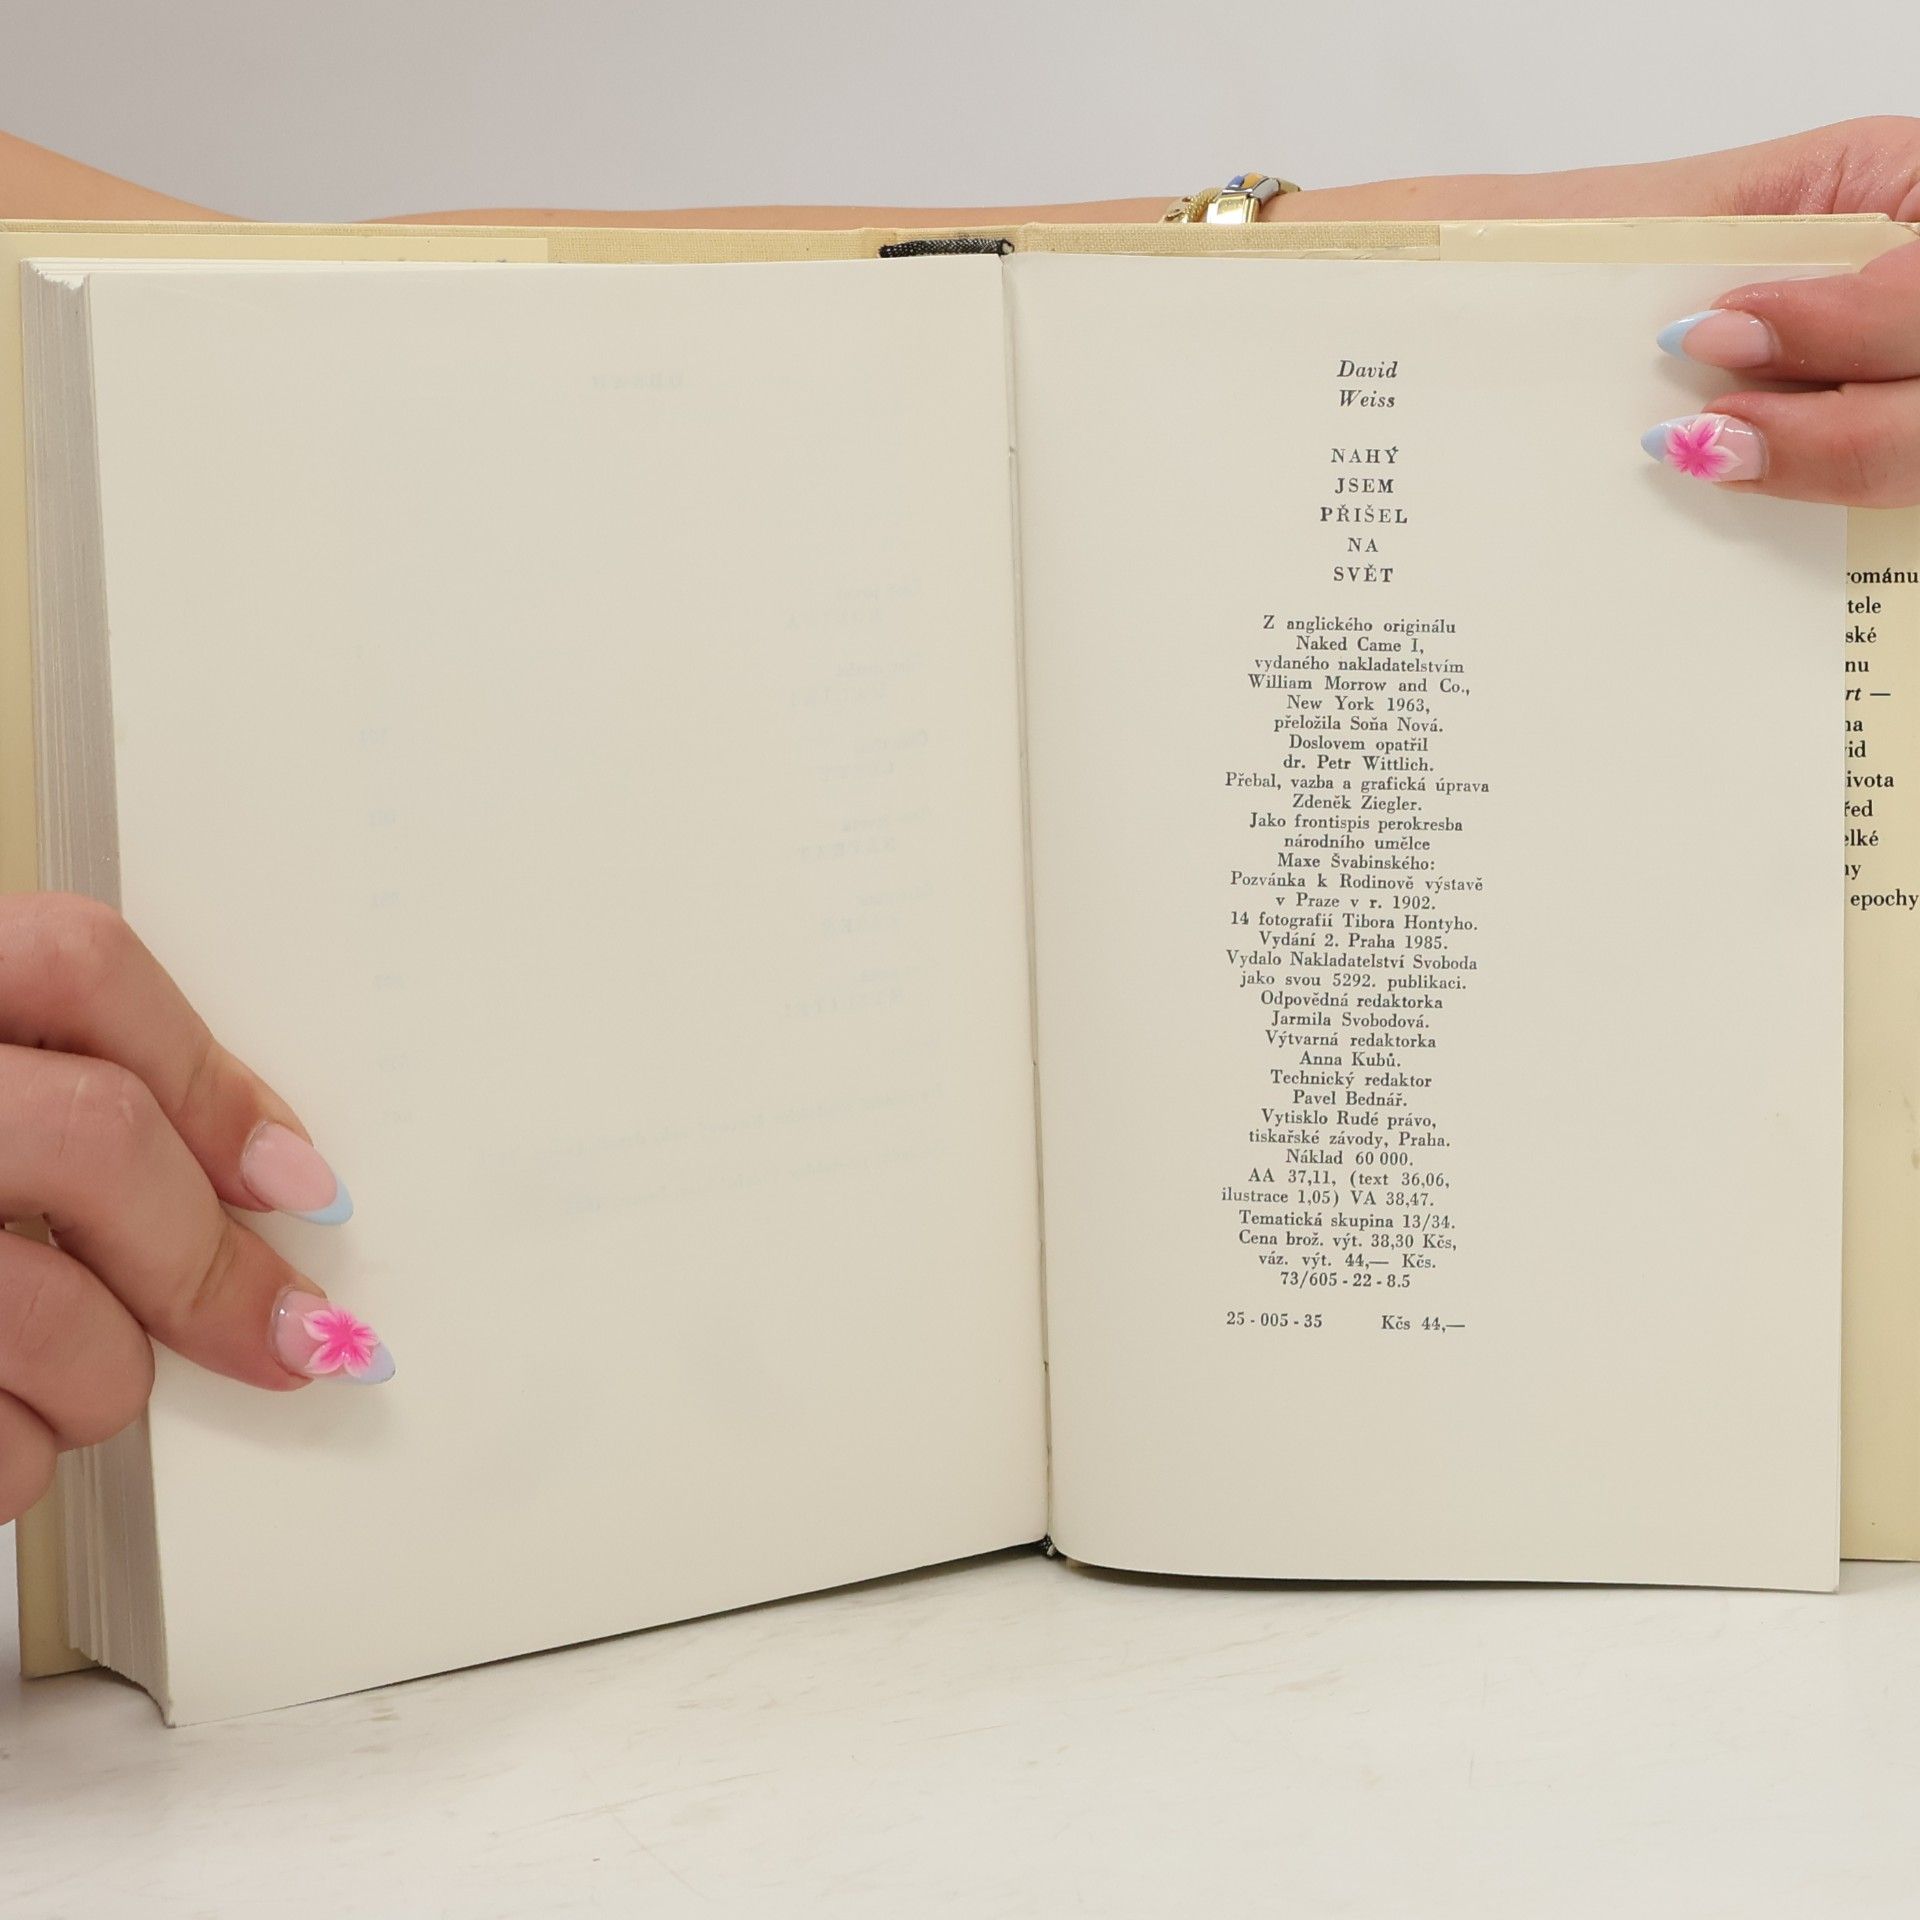 David
Weiss
NAHÝ
JSEM
PŘIŠEL
NA
SVĚT
Z anglického originálu
Naked Came I,
vydaného nakladatelstvím
William Morrow and Co.,
New York 1963,
přeložila Soňa Nová.
Doslovem opatřil
dr. Petr Wittlich.
Přebal, vazba a grafická úprava
Zdeněk Ziegler.
Jako frontispis perokresba
národního umělce
Maxe Švabinského:
Pozvánka k Rodinově výstavě
v Praze v r. 1902.
14 fotografií Tibora Hontyho.
Vydání 2. Praha 1985.
Vydalo Nakladatelství Svoboda
jako svou 5292. publikaci.
Odpovědná redaktorka
Jarmila Svobodová.
Výtvarná redaktorka
Anna Kubů.
Technický redaktor
Pavel Bednář.
Vytisklo Rudé právo,
tiskařské závody, Praha.
Náklad 60 000.
AA 37,11, (text 36,06,
ilustrace 1,05) VA 38,47.
Tematická skupina 13/34.
Cena brož. výt. 38,30 Kčs,
váz. výt. 44,— Kčs.
73/605 - 22 - 8.5
25 - 005 - 35 Kčs 44,—
románu
epochy